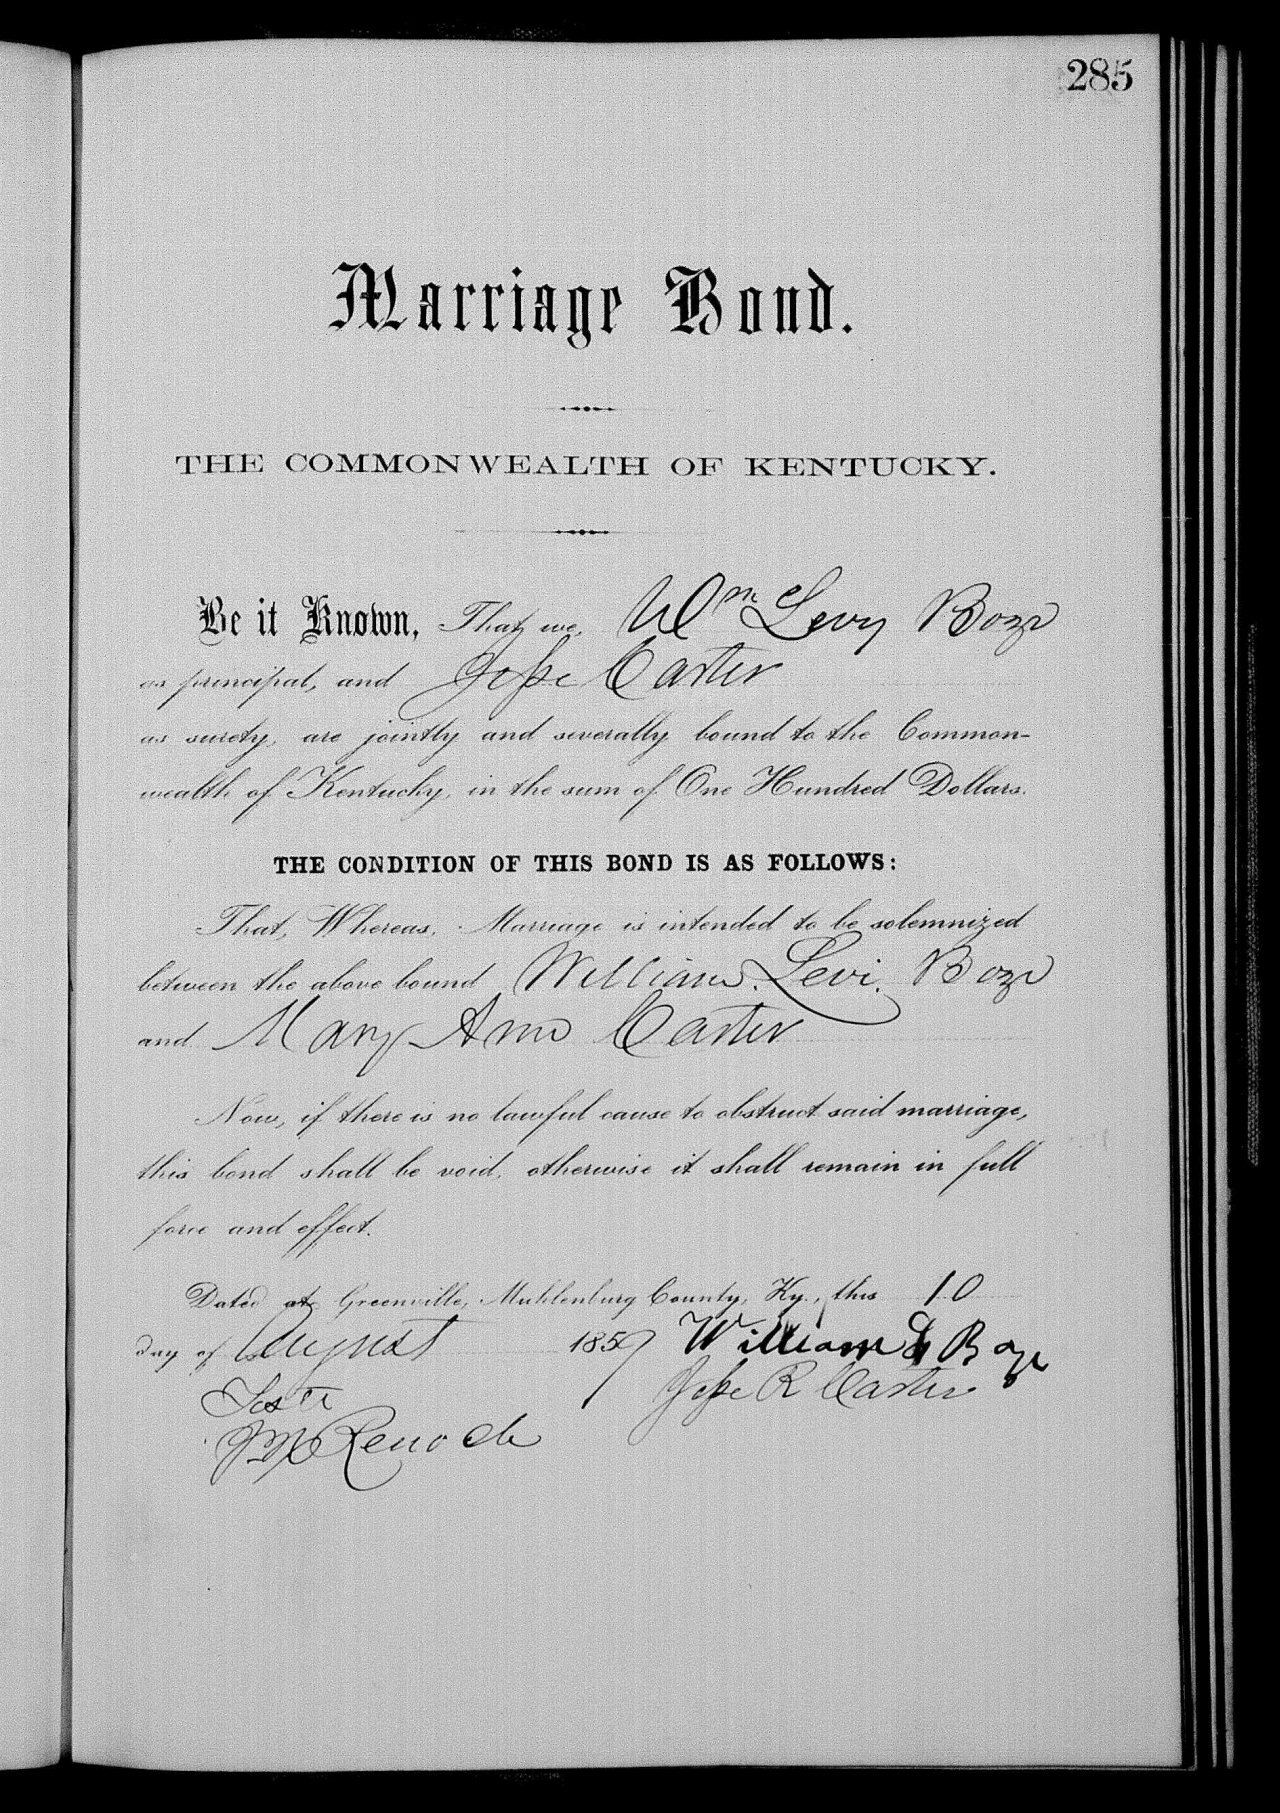 285
Marriage Bond.
THE COMMONWEALTH OF KENTUCKY.
Be it Known, That we, Wm Levy Boze
as principal, and Jesse Carter
as surety, are jointly and severally bound to the Common-
wealth of Kentucky, in the sum of One Hundred Dollars.
THE CONDITION OF THIS BOND IS AS FOLLOWS:
That, Whereas, Marriage is intended to be solemnized
between the above bound William Levi Boze
and Mary Ann Carter
Now, if there is no lawful cause to obstruct said marriage,
this bond shall be void, otherwise it shall remain in full
force and effect.
Dated at Greenville, Muhlenburg County, Ky., this 10
day of August 1859 William L Boze
Jesse R Carter
Teste
Reno Clk